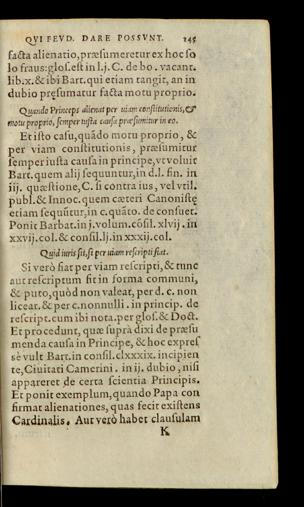 QVI FEVD. DARE POSSVNT. 145
facta alienatio, præsumeretur ex hoc so
lo fraus: glos. est in l.j. C. de bo. vacant.
lib. x. & ibi Bart. qui etiam tangit, an in
dubio pręsumatur facta motu proprio.
Quando Princeps alienat per uiam constitutionis, &
motu proprio, semper iusta causa præsumitur in eo.
Et isto casu, quãdo motu proprio, &
per viam constitutionis, præsumitur
semper iusta causa in principe, vt voluit
Bart. quem alij sequuntur, in d.l. fin. in
iij. quæstione, C. si contra ius, vel vtil.
publ. & Innoc. quem cæteri Canonistę
etiam sequũtur, in c. quãto. de consuet.
Ponit Barbat. in j. volum. cõsil. xlvij. in
xxvij. col. & consil. lj. in xxxij. col.
Quid iuris sit, si per uiam rescripti fiat.
Si verò fiat per viam rescripti, & tunc
aut rescriptum fit in forma communi,
& puto, quòd non valeat, per d. c. non
liceat. & per c. nonnulli. in princip. de
rescript. cum ibi nota. per glos. & Doct.
Et procedunt, quæ suprà dixi de præsu
menda causa in Principe, & hoc expres
sè vult Bart. in consil. clxxxix. incipien
te, Ciuitati Camerini. in ij. dubio, nisi
appareret de certa scientia Principis.
Et ponit exemplum, quando Papa con
firmat alienationes, quas fecit existens
Cardinalis. Aut verò habet clausulam
K